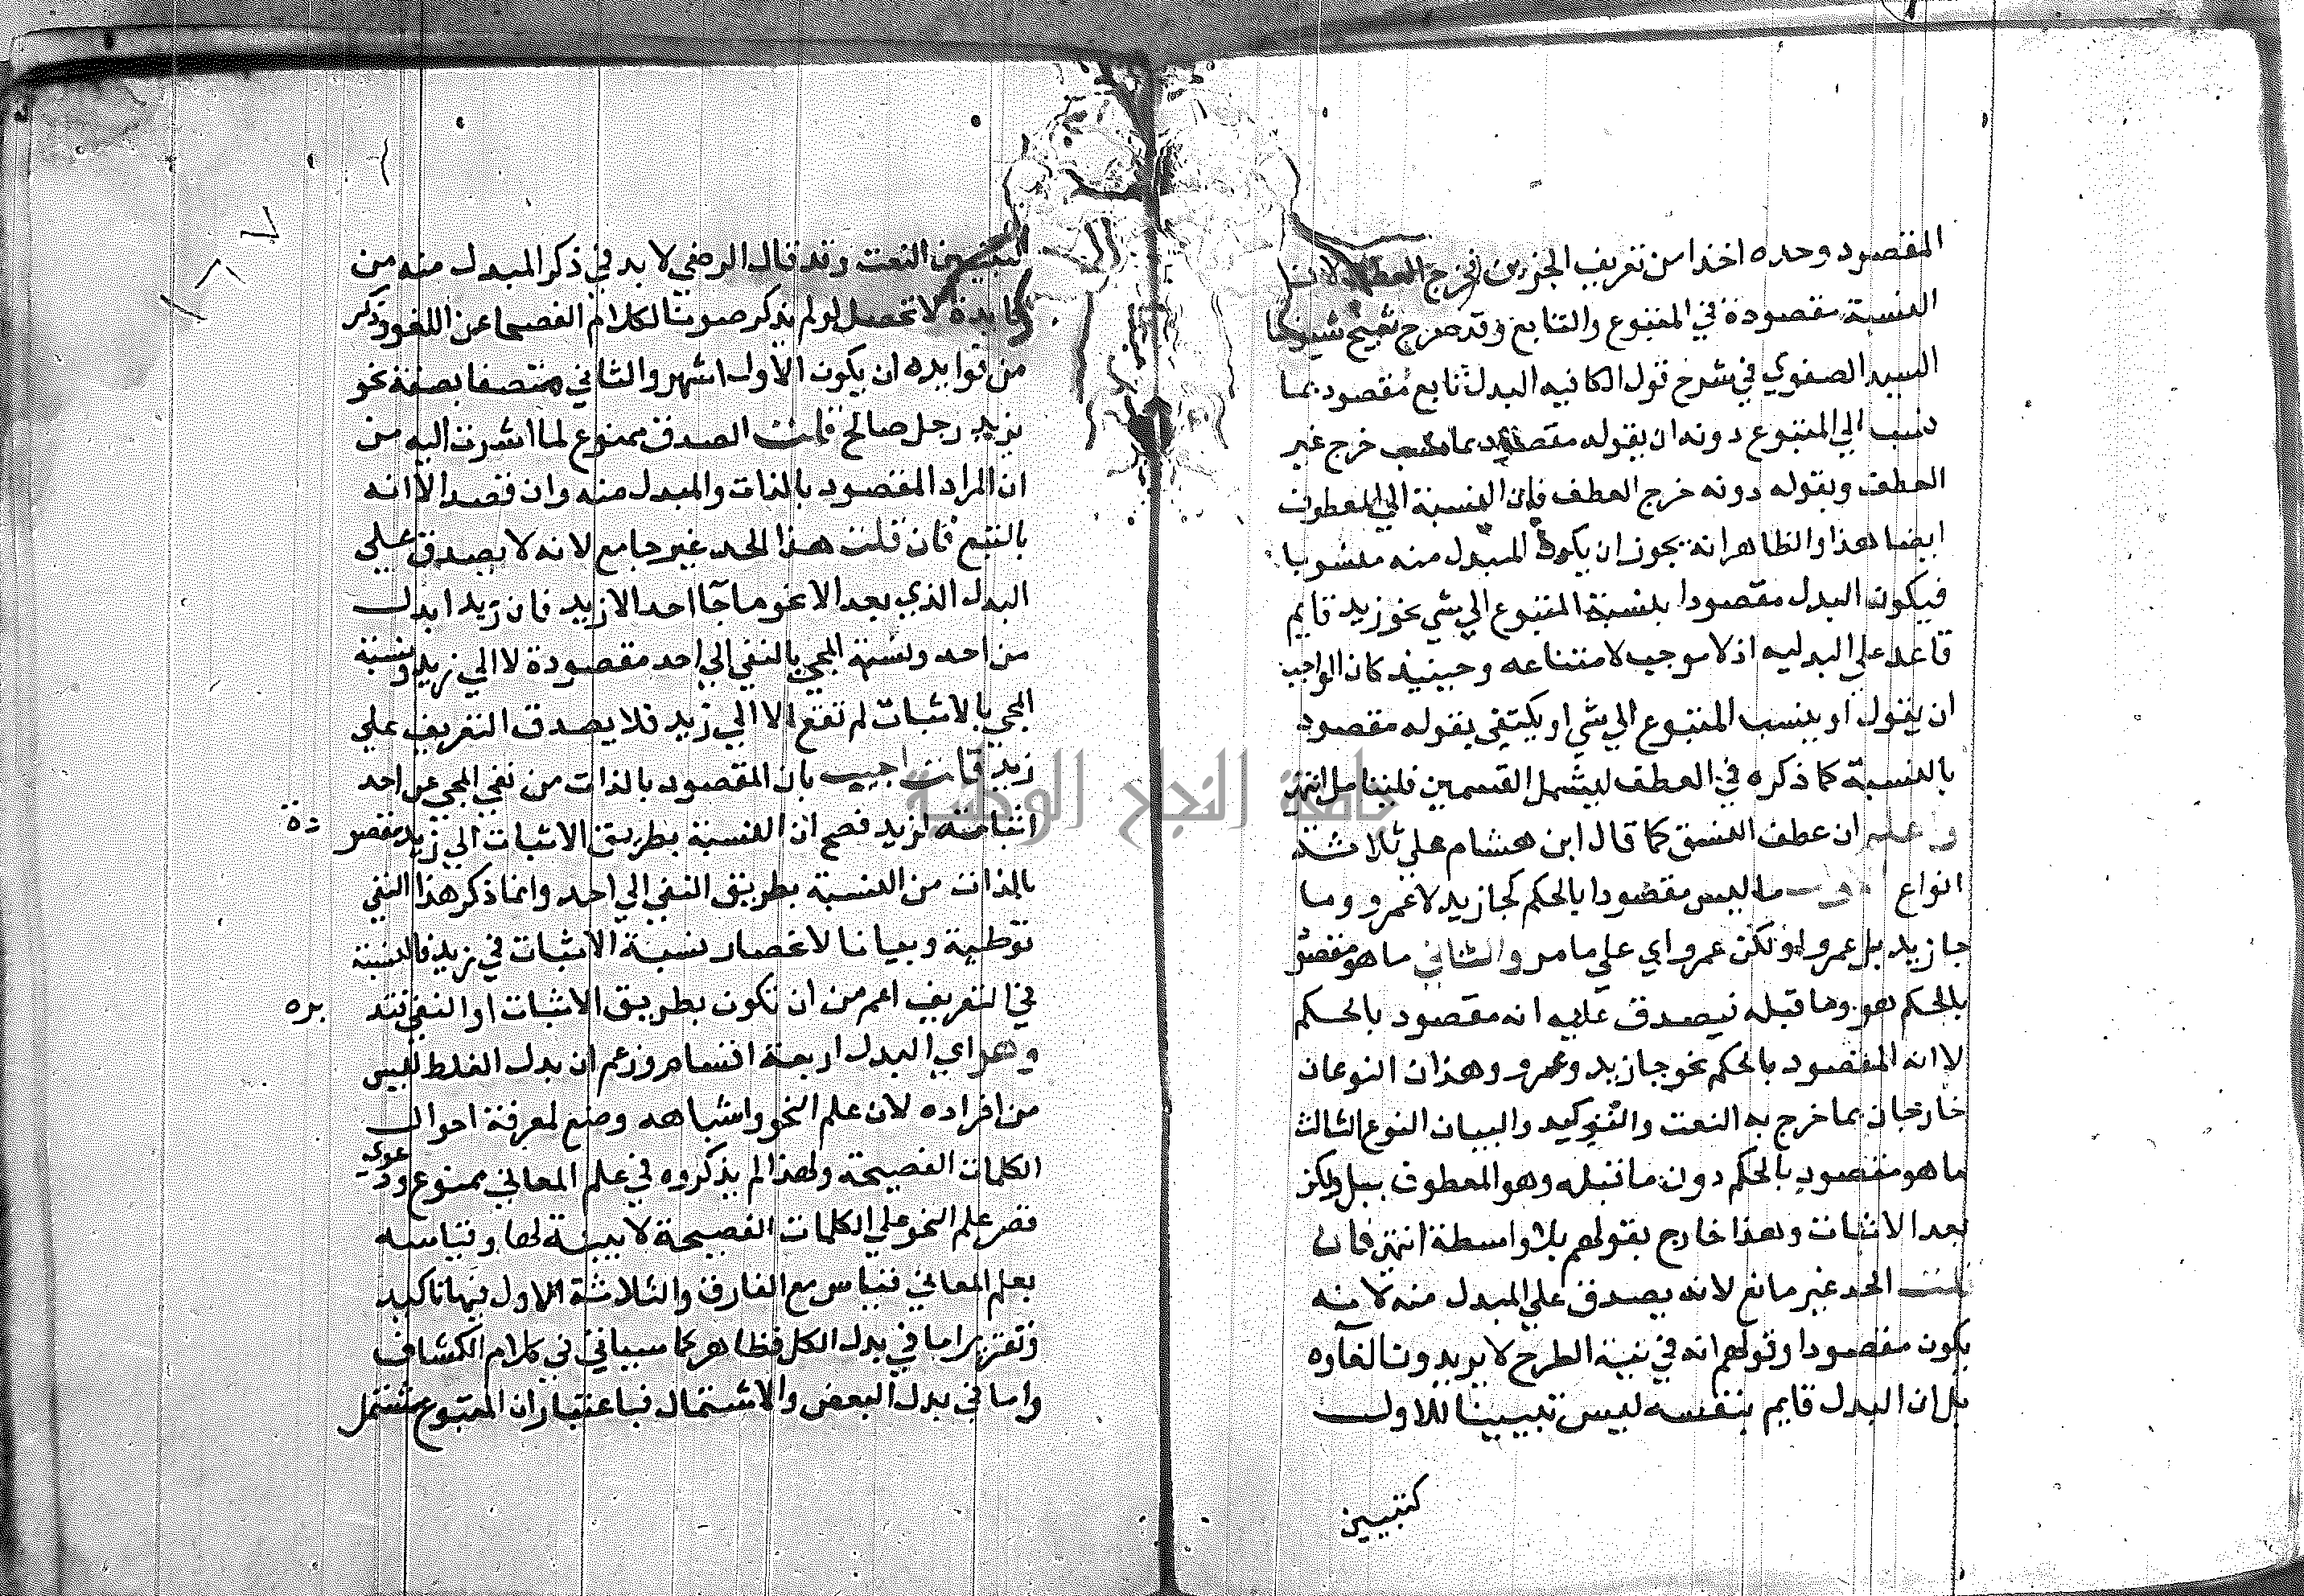 المقصود وحده اخذا من تعريف الجزءين فخرج العطف لان
النسبة مقصودة في المتبوع والتابع وقد صرح شيخ شيوخنا
السيد الصفوي في شرح قول الكافيه البدل تابع مقصود بما
نسب الي المتبوع دونه ان بقوله مقصود بما نسب خرج غير
العطف وبقوله دونه خرج العطف فان النسبة الي المعطوف
ايضا هذا والظاهر انه يجوز ان يكون المبدل منه منسوبا
فيكون البدل مقصودا بنسبة المتبوع الي شي نحو زيد قايم
قاعد علي البدليه اذ لا موجب لامتناعه وحينيذ كان الواجب
ان يقول او ينسب المتبوع الي شي او يكتفي بقوله مقصود
بالنسبة كما ذكره في العطف ليشمل القسمين فليتامل انتهي
واعلم ان عطف النسق كما قال ابن هشام علي ثلاثة
انواع ما ليس مقصودا بالحكم كجا زيد لا عمرو وما
جا زيد بل عمرو او لكن عمرو اي علي ما مر والثاني ما هو مقصو
بالحكم هو وما قبله فيصدق عليه انه مقصود بالحكم
لا انه المقصود بالحكم نحو جا زيد وعمرو وهذان النوعان
خارجان بما خرج به النعت والتوكيد والبيان النوع الثالث
ما هو مقصود بالحكم دون ما قبله وهو المعطوف ببل ولكن
بعد الاثبات وهذا خارج بقولهم بلا واسطة انتهي فان
قلت الحد غير مانع لانه يصدق علي المبدل منه لانه
يكون مقصودا وقولهم انه في نية الطرح لا يريدون الغاوه
بل ان البدل قايم بنفسه ليس تبيينا للاول
كتبيين
النعت وقد قال الرضي لا بد في ذكر المبدل منه من
فايدة لا تحصل لو لم يذكر صونا لكلام الفصحا عن اللغو وذكر
من فوايده ان يكون الاول اشهر والثاني متصفا بصفة نحو
بزيد رجل صالح قلت الصدق ممنوع لما اشرت اليه من
ان المراد المقصود بالذات والمبدل منه وان قصد الا انه
بالتبع فان قلت هذا الحد غير جامع لانه لا يصدق علي
البدل الذي بعد الا نحو ما جا احد الا زيد فان زيد ابدل
من احد ونسبة المجي بالنفي الي احد مقصودة لا الي زيد ونسبة
المجي بالاثبات لم تقع الا الي زيد فلا يصدق التعريف علي
زيد قلت اجيب بان المقصود بالذات من نفي المجي عن احد
اثباته لزيد فصح ان النسبة بطريق الاثبات الي زيد مقصو دة
بالذات من النسبة بطريق النفي الي احد وانما ذكر هذا النفي
توطية وبيانا لانحصار نسبة الاثبات في زيد فالنسبة
في التعريف اعم من ان تكون بطريق الاثبات او النفي فتد بره
وهو اي البدل اربعة اقسام وزعم ان بدل الغلط ليس
من افراده لان علم النحو واشباهه وضع لمعرفة احوال
الكلمات الفصيحة ولهذا لم يذكروه في علم المعاني ممنوع ودعوي
قصر علم النحو علي الكلمات الفصيحة لا بينة لها وقياسه
بعلم المعاني قياس مع الفارق والثلاثة الاول فيها تاكيد
وتقرير اما في بدل الكل فظاهر كما سياتي في كلام الكشاف
واما في بدل البعض والاشتمال فباعتبار ان المتبوع مشتمل